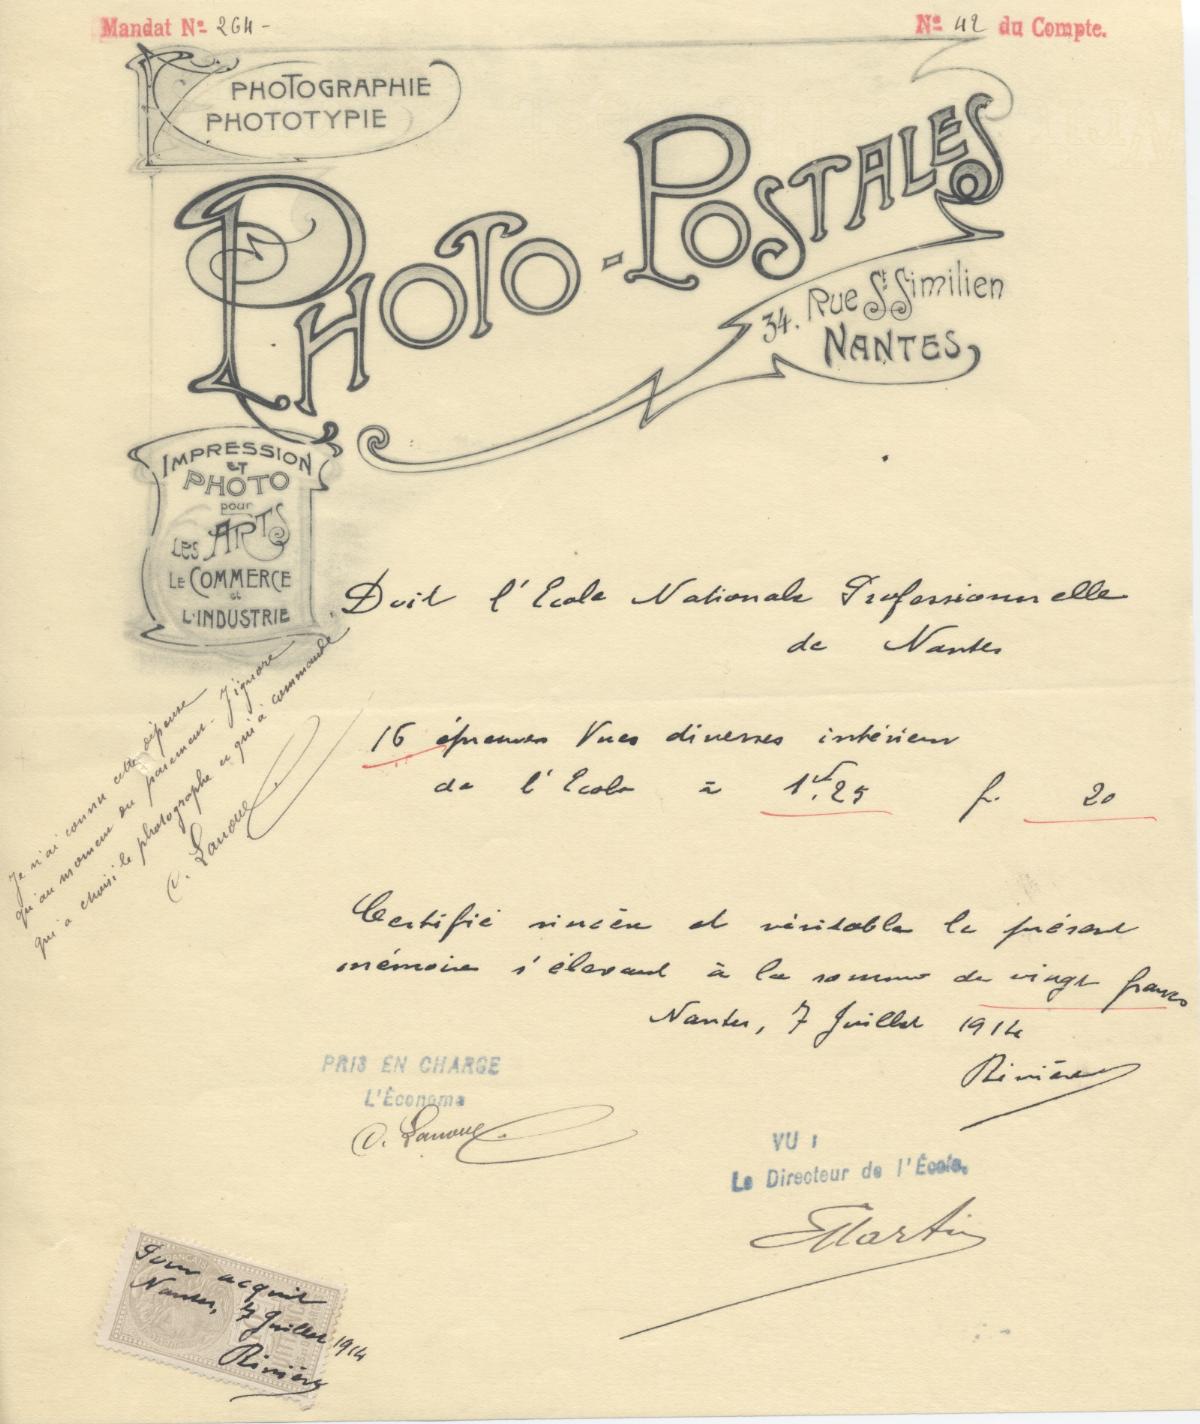 Mandat No 264 -
No 42 du Compte.
PHOTOGRAPHIE
PHOTOTYPIE
PHOTO-POSTALES
34. Rue St Similien
NANTES
IMPRESSION
ET
PHOTO
pour
LES ARTS
LE COMMERCE
et
L'INDUSTRIE
Doit l'Ecole Nationale Professionnelle
de Nantes
Je n'ai connu cette dépense
qu'au moment du paiement. J'ignore
qui a choisi le photographe et qui a commandé
C. Lanoue
16 épreuves Vues diverses intérieur
de l'Ecole à 1f.25 fr. 20
Certifié sincère et véritable le présent
mémoire s'élevant à la somme de vingt francs
Nantes, 7 Juillet 1914
Rivière
PRIS EN CHARGE
L'Économe
C. Lanoue
VU :
Le Directeur de l'École.
EMartin
Pour acquit
Nantes, 7 Juillet 1914
Rivière